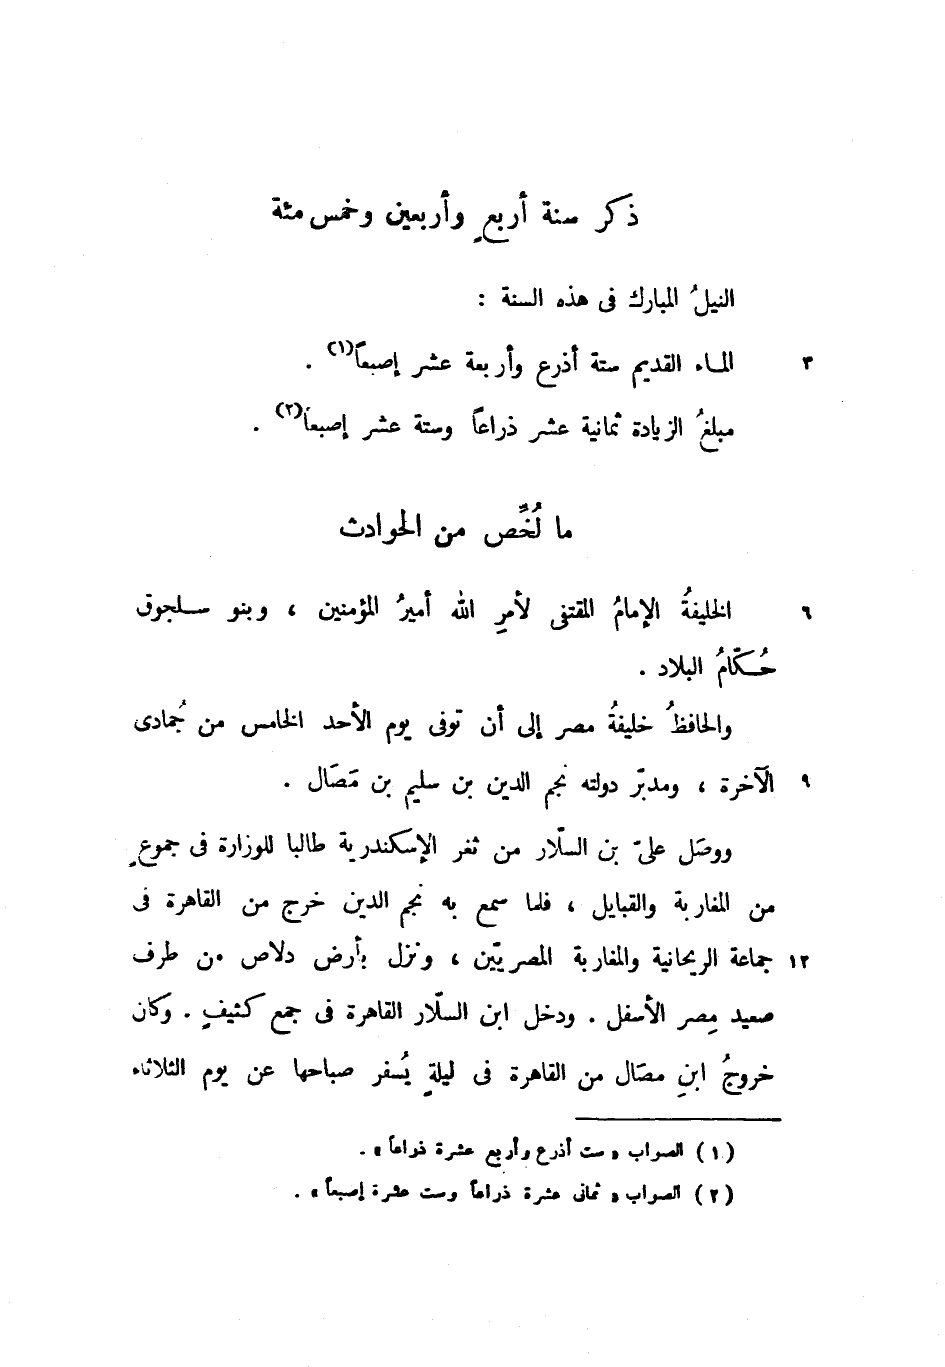 ذكر سنة أربعٍ وأربعين وخمس مئة
النيلُ المبارك فى هذه السنة :
٣ الماء القديم ستة أذرع وأربعة عشر إصبعاً(١) .
مبلغُ الزيادة ثمانية عشر ذراعاً وستة عشر إصبعاً(٢) .
ما لُخِّص من الحوادث
٦ الخليفةُ الإمامُ المقتفى لأمرِ الله أميرُ المؤمنين ، وبنو سلجوق
حُكّامُ البلاد .
والحافظُ خليفةُ مصر إلى أن توفى يوم الأحد الخامس من جُمادى
٩ الآخرة ، ومدبّر دولته نجم الدين بن سليم بن مَصَال .
ووصَل علىّ بن السلّار من ثغر الإسكندرية طالبا للوزارة فى جموعٍ
من المغاربة والقبايل ، فلما سمع به نجم الدين خرج من القاهرة فى
١٢ جماعة الريحانية والمغاربة المصريّين ، ونزل بأرض دلاص من طرف
صعيد مِصر الأسفل . ودخل ابن السلّار القاهرة فى جمع كثيفٍ . وكان
خروجُ ابنِ مصَال من القاهرة فى ليلةٍ يُسفر صباحها عن يوم الثلاثاء
(١) الصواب « ست أذرع وأربع عشرة ذراعاً » .
(٢) الصواب « ثمانى عشرة ذراعاً وست عشرة إصبعاً » .